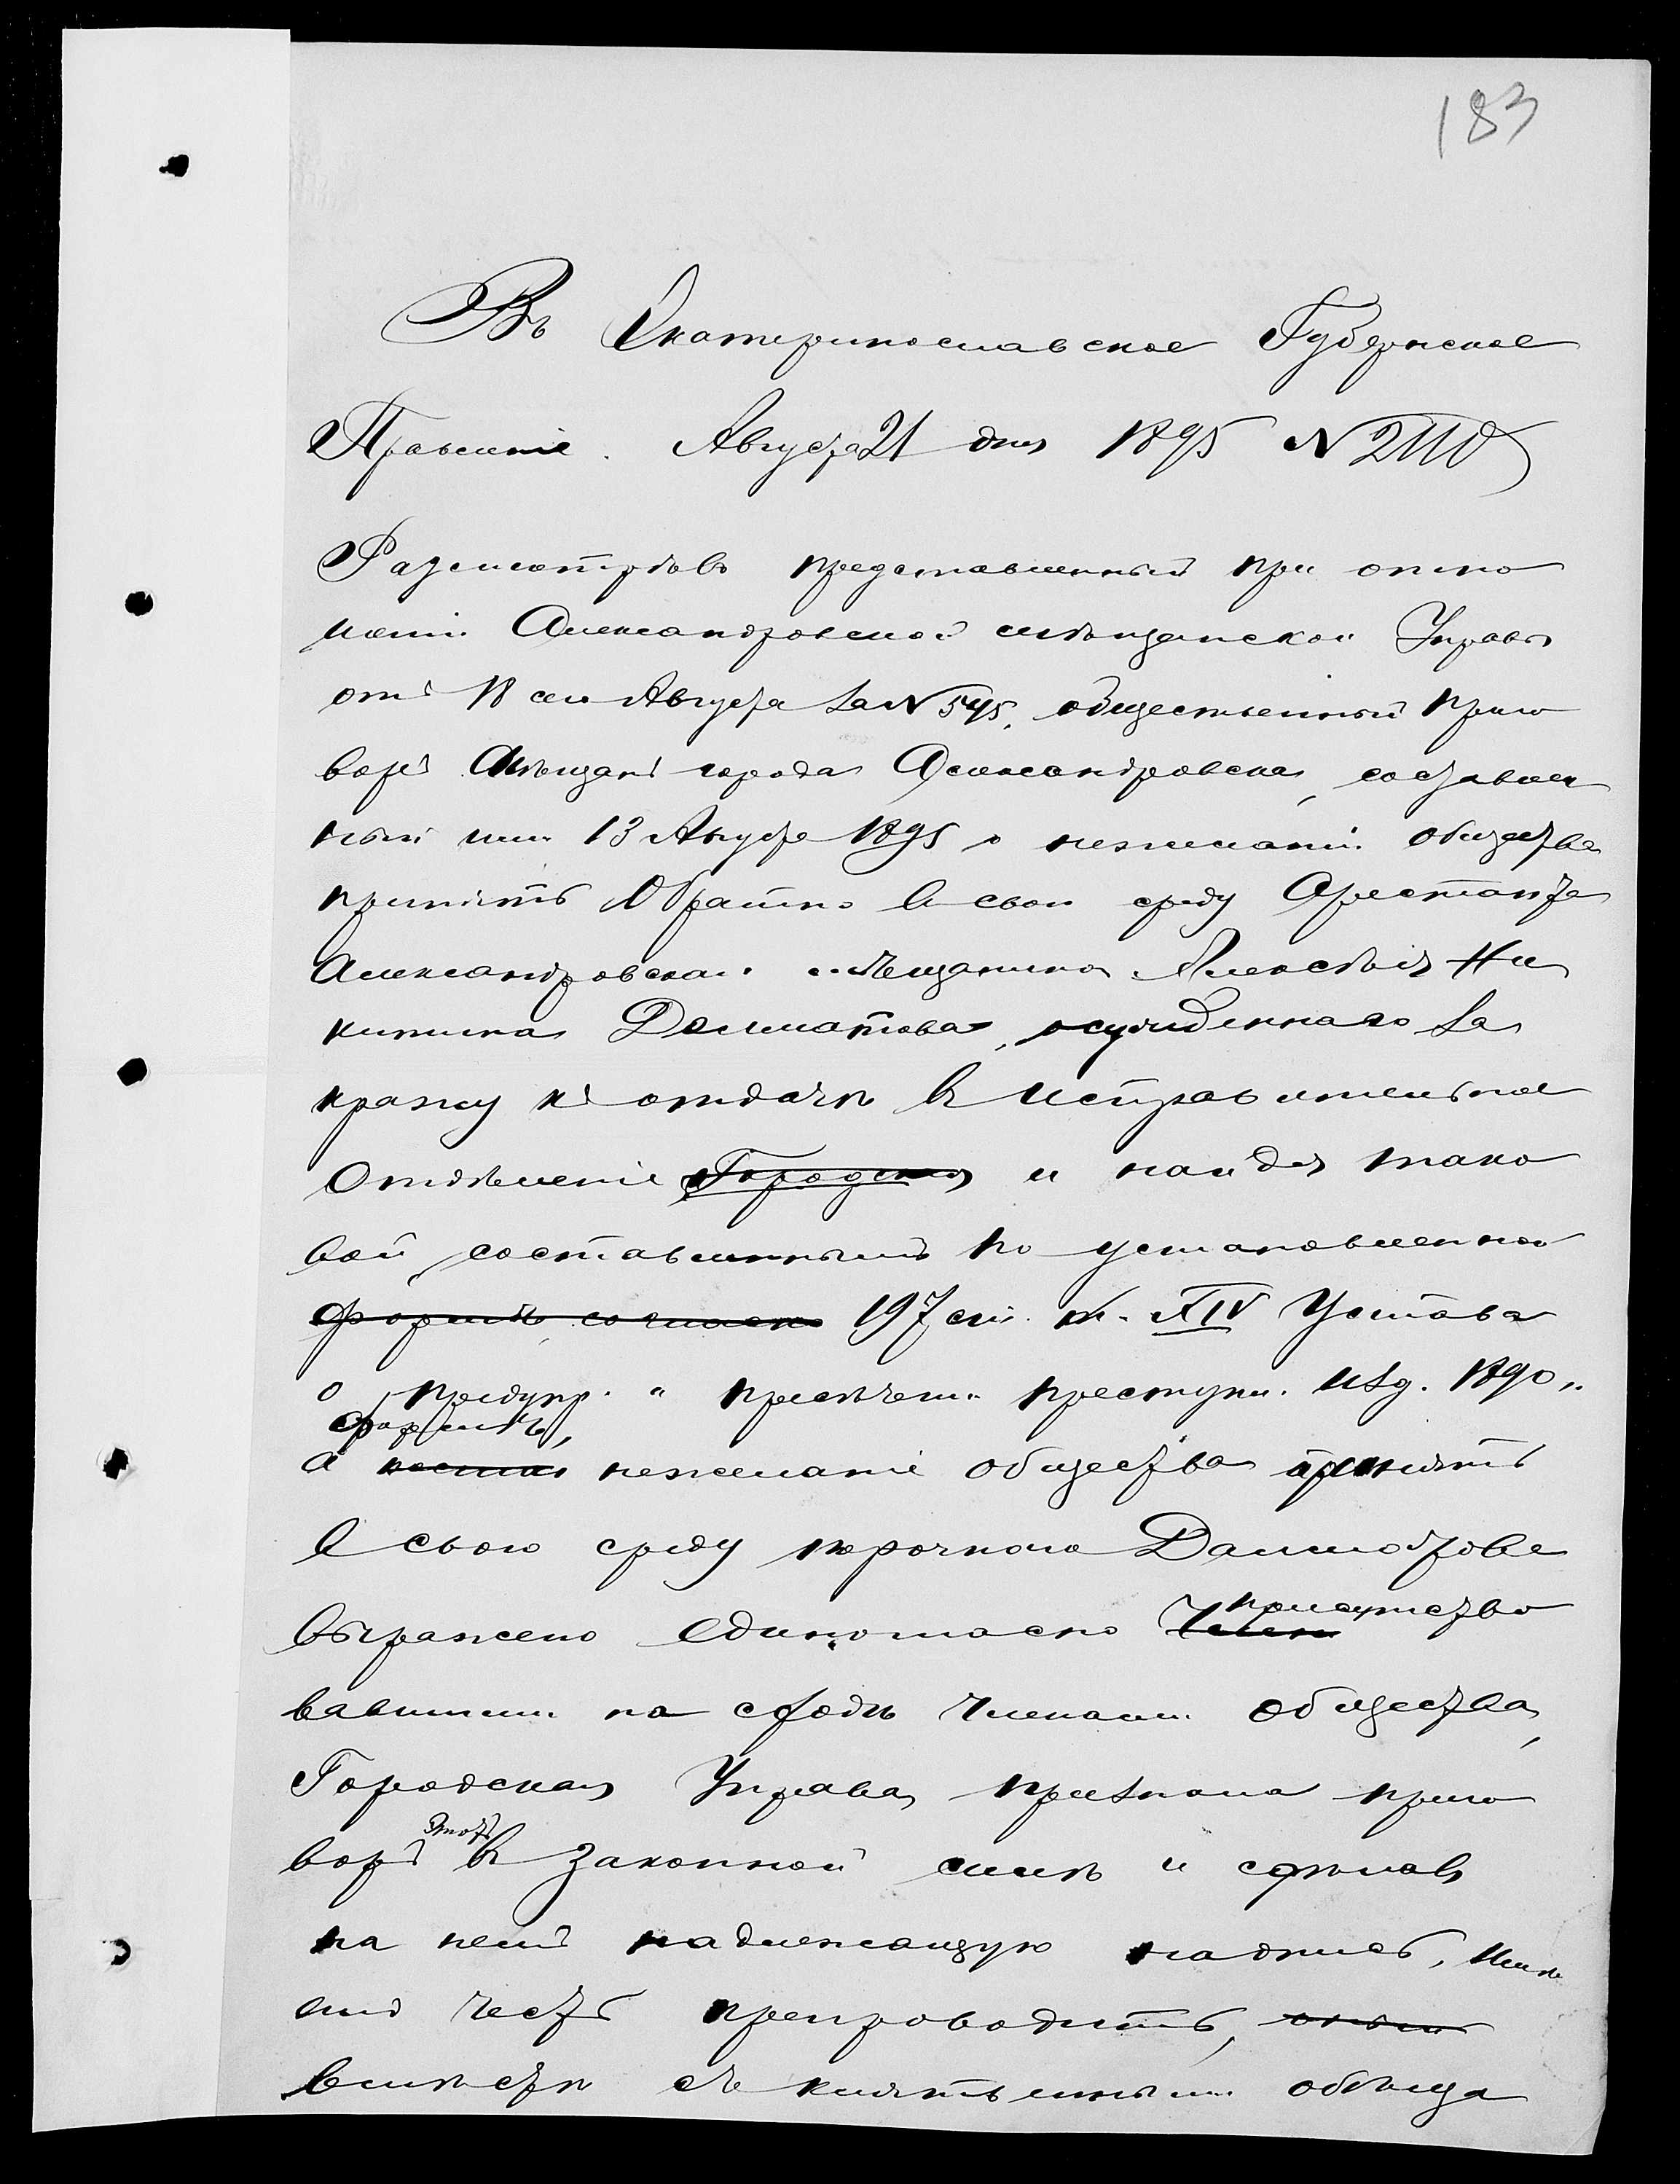 183
Въ Екатеринославское Губернское
Правленіе. Августа 21 дня 1895 N 2110
Разсмотрѣвъ представленный при отно
шеніи Александровской мѣщанской Управы
отъ 18 сего Августа за N 545, общественный приго
воръ мѣщанъ города Александровска, составлен
ный ими 13 Августа 1895 о нежеланіи общества
принять обратно въ свою среду Арестанта
Александровскаго мѣщанина Алексѣя Ни
китина Далматова, осужденнаго за
кражу къ отдачѣ въ Исправительное
Отдѣленіе Городская и найдя тако
вой, составленнымъ по установленной
формѣ, согласно 197 ст. т. XIV Устава
о предупр. и пресѣчен. преступл. изд. 1890 г.
формѣ,
а нежеланіе общества принять
въ свою среду порочнаго Далматова
выражено единогласно Член присутство
вавшими на сходѣ членами общества,
Городская Управа, признала приго
воръ этотъ въ законной силѣ и сдѣлавъ
на немъ надлежащую надпись, имѣ
етъ честь препроводить,
вмѣстѣ съ клятвеннымъ обѣща